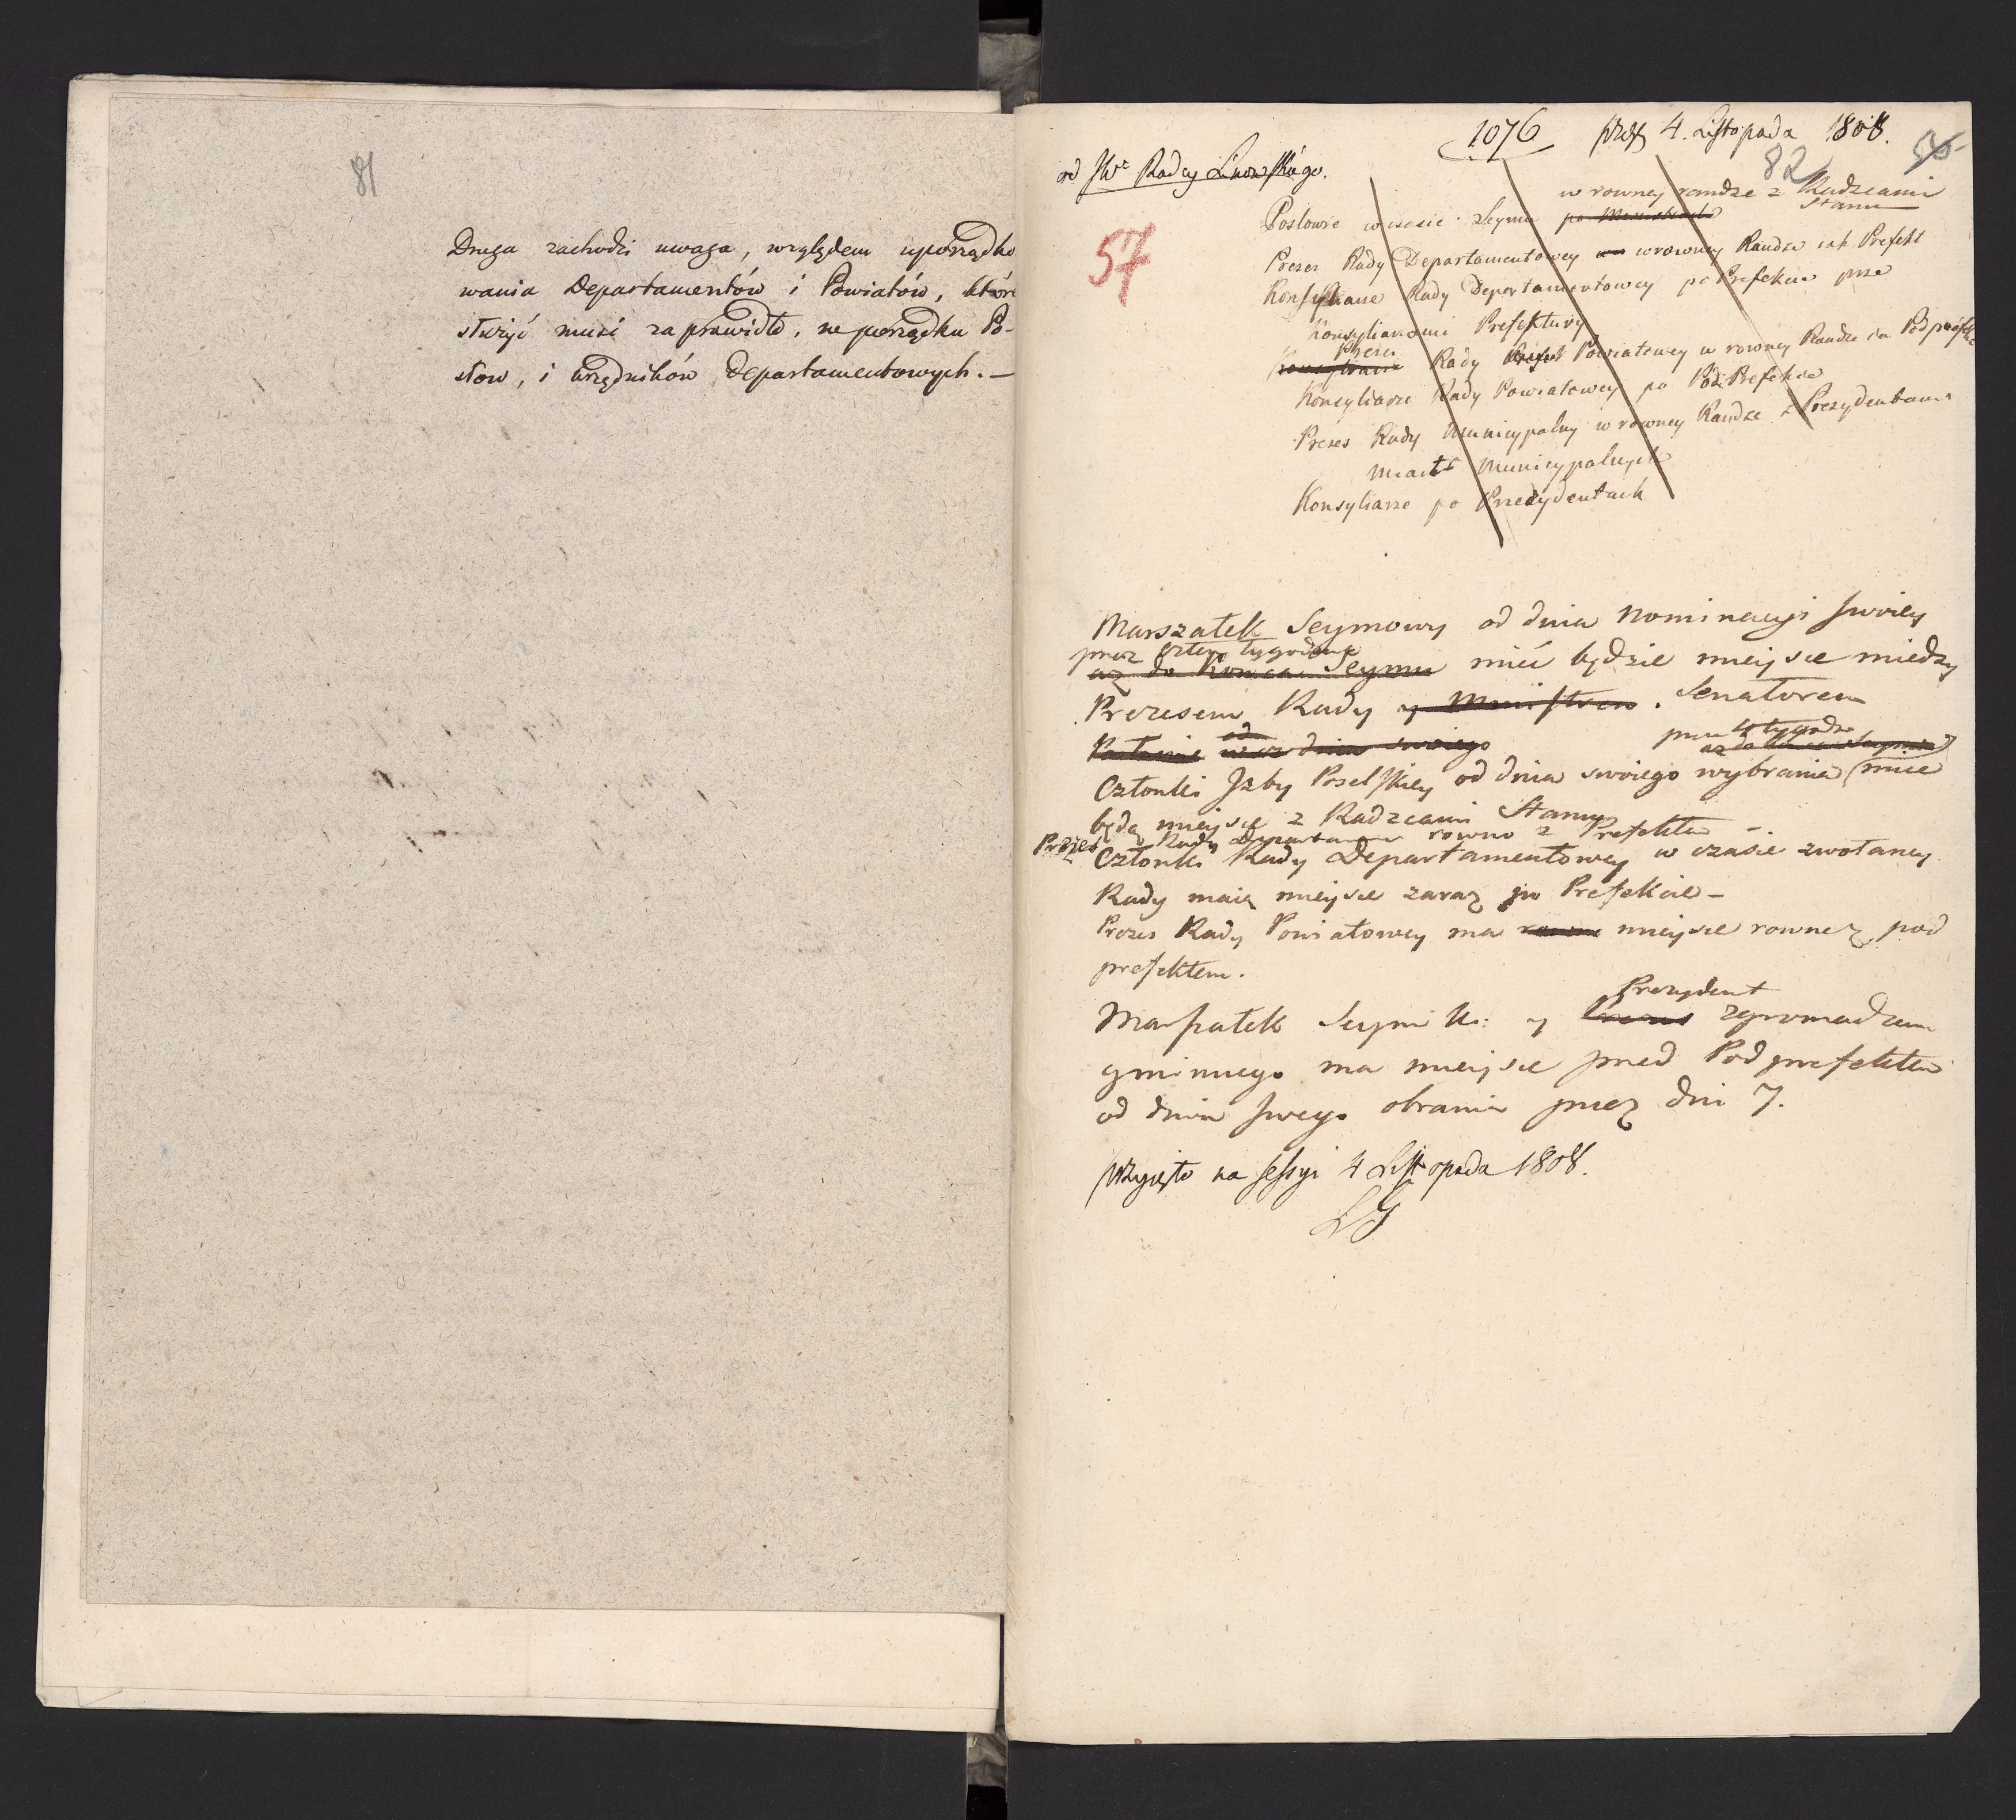 81
Druga zachodzi uwaga, względem uporządko
wania Departamentów i Powiatów, które
służyć musi za prawidło, w porządku Po-
słow, i urzędników Departamentowych. —
1076 4. Listopada 1808.
82 56
od JWo Radcy Linowskiego.
57
w rowney randze z Radzcami
Stanu
Posłowie w czasie Seymu po Ministrach
Prezes Rady Departamentowey w rowney Randze jak Prefekt
Konsyliarze Rady Departamentowey po Prefekcie prze
Konsyliarzami Prefektury
Prezes
Konsyliarze Rady Powiatowey w rowney Randze Podprefekt
Konsyliarze Rady Powiatowey po PodPrefekcie
Prezes Rady Municypalny w rowney Randze z Prezydentami
Miast Municypalnych
Konsyliarze po Prezydentach
Marszałek Seymowy od dnia Nominacyi swoiey
przez cztery tygodnie
aż do konca Seymu mieć będzie mieysce miedzy
Prezesem Rady y Ministrem. Senatorem
od
dnia swoiego
Członki Izby Poselskiey od dnia swoiego wybrania mieć
będą mieysce z Radzcami Stanu
Prezes Rady Departamen rowno z Prefektem —
Członki Rady Departamentowey w czasie zwołaney
Rady maią mieysce zaraz po Prefekcie —
Prezes Rady Powiatowey ma rowne mieysce rowne z pod
prefektem.
Prezydent
Marszałek Seymik: y Prezes zgromadzenia
gminnego ma mieysce przed Podprefektem
od dnia swego obrania przez dni 7.
Przyięto na sessyi 4 Listopada 1808.
LG